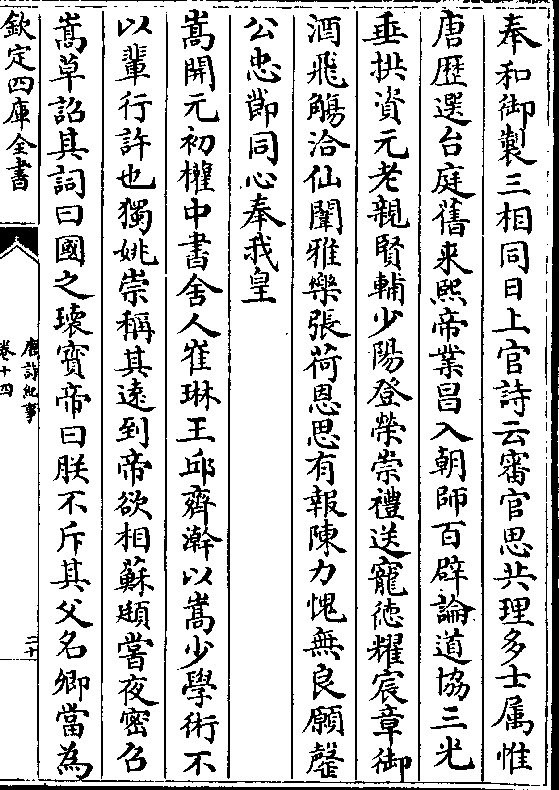 奉和御製三相同日上官詩云審官思共理多士属惟
唐歴選台庭舊来熈帝業昌入朝師百辟論道協三光
垂拱資元老親賢輔少陽登榮崇禮送寵徳耀宸章御
酒飛觴洽仙闈雅樂張荷恩思有報陳力愧無良願罄
公忠節同心奉我皇
嵩開元初櫂中書舍人崔琳王邱齊澣以嵩少學術不
以輩行許也獨姚崇稱其逺到帝欲相蘇頲當夜密召
嵩草詔其詞曰國之瓌寳帝曰朕不斥其父名卿當為
欽定四庫全書
唐詩紀事
卷十四
二十